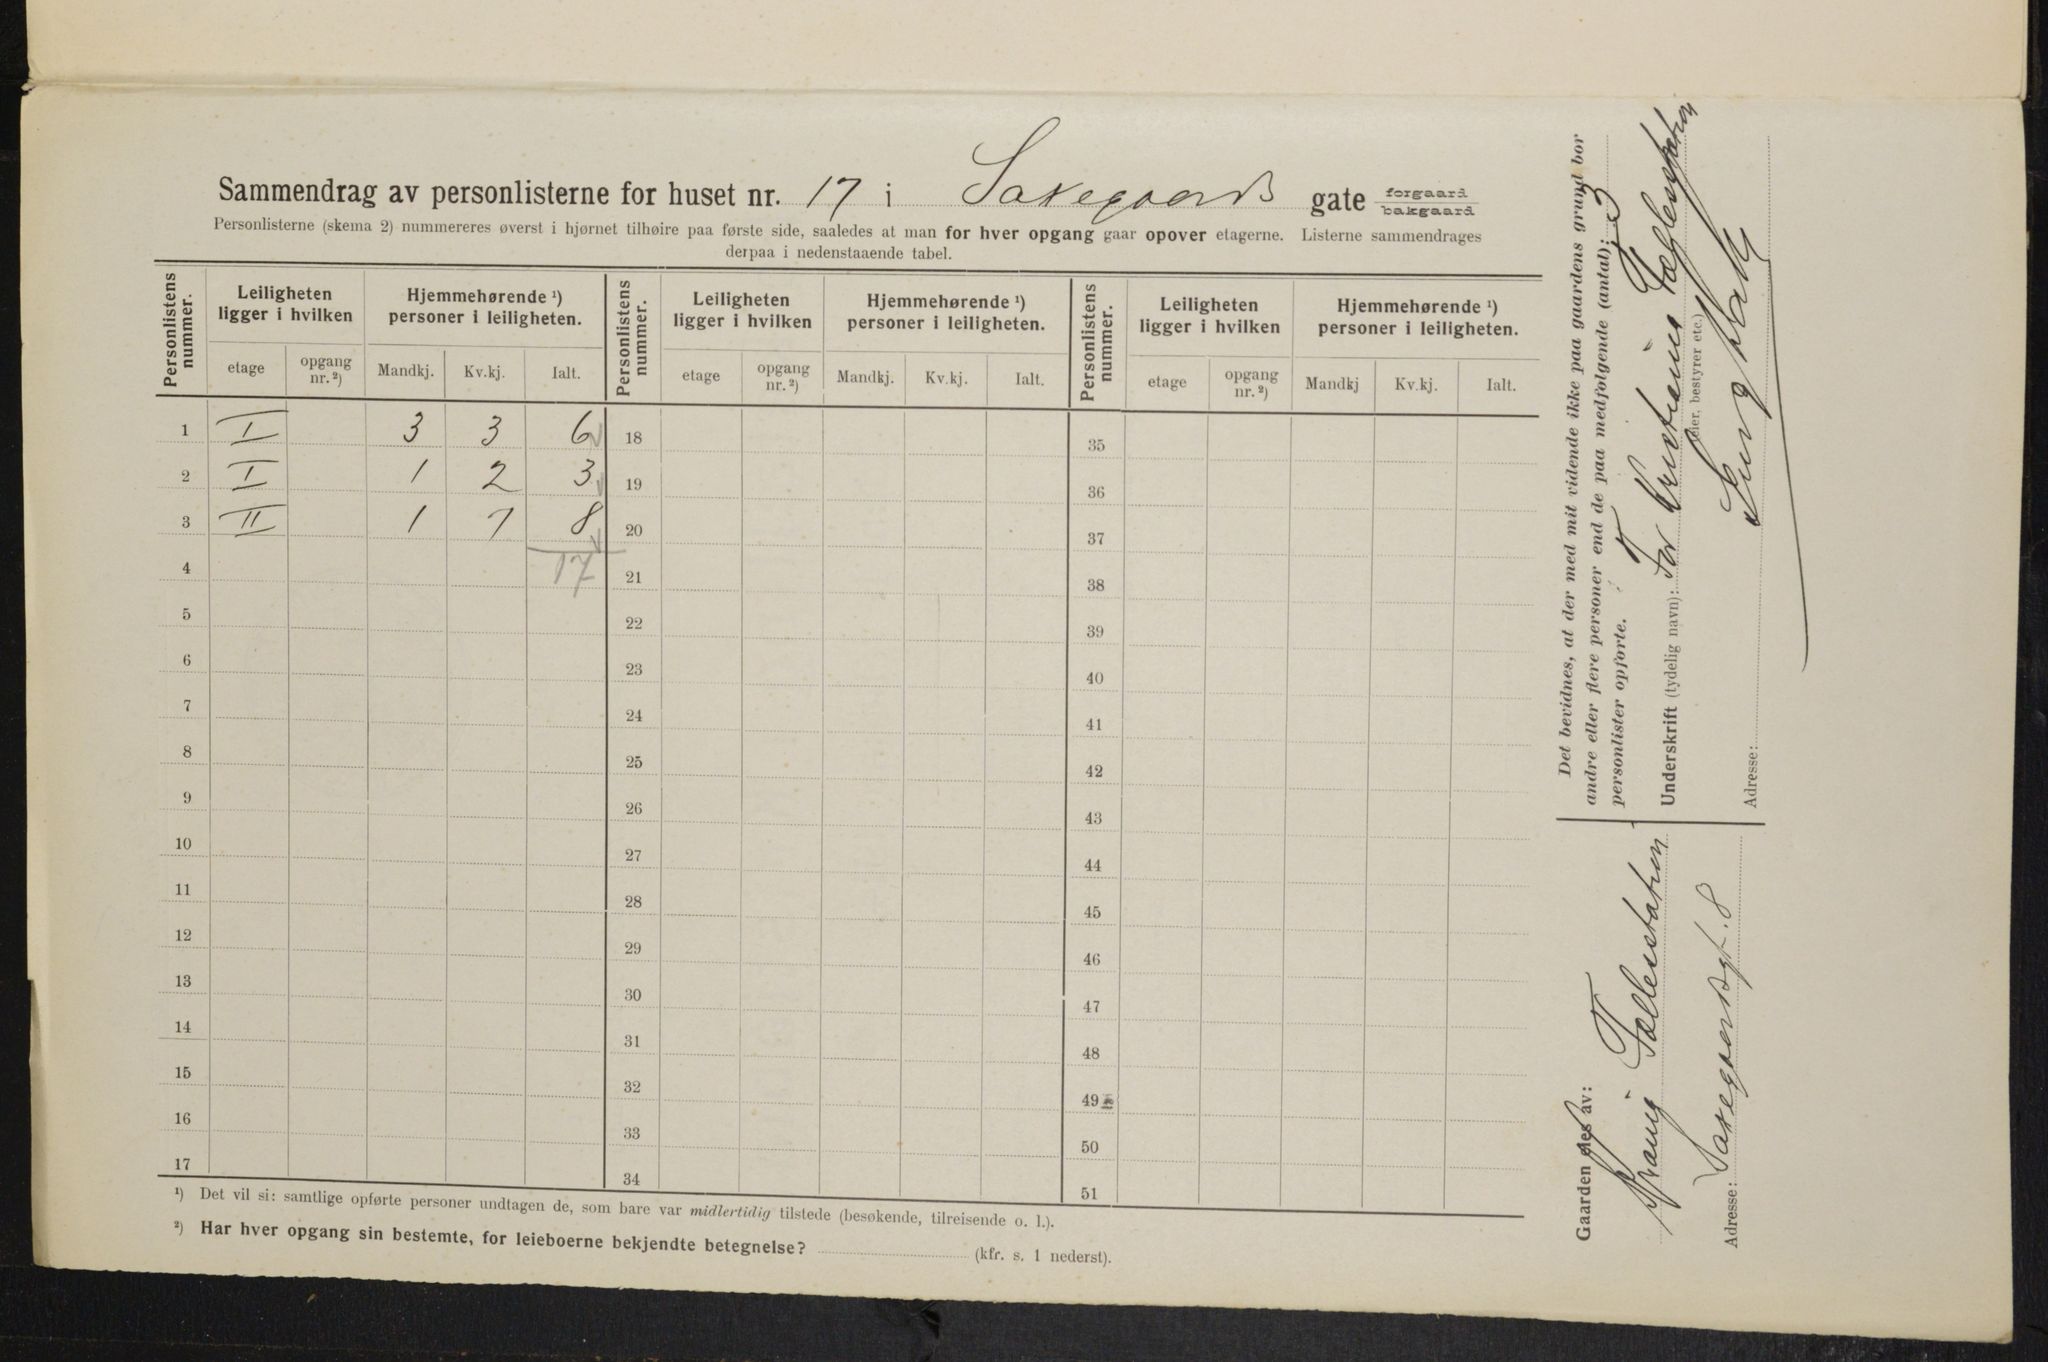 Sammendrag av personlisterne for huset nr. 17 i Saxegaards gate forgaard bakgaard
Personlisterne (skema 2) nummereres øverst i hjørnet tilhøire paa første side, saaledes at man for hver opgang gaar opover etagerne. Listerne sammendrages
derpaa i nedenstaaende tabel.
Personlistens nummer. Leiligheten ligger i hvilken Hjemmehørende ¹) personer i leiligheten. Personlistens nummer. Leiligheten ligger i hvilken Hjemmehørende ¹) personer i leiligheten. Personlistens nummer. Leiligheten ligger i hvilken Hjemmehørende ¹) personer i leiligheten.
etage opgang nr. ²) Mandkj. Kv.kj. Ialt. etage opgang nr. ²) Mandkj. Kv.kj. Ialt. etage opgang nr. ²) Mandkj Kv.kj. Ialt.
1 I 3 3 6 18 35
2 I 1 2 3 19 36
3 II 1 7 8 20 37
4 17 21 38
5 22 39
6 23 40
7 24 41
8 25 42
9 26 43
10 27 44
11 28 45
12 29 46
13 30 47
14 31 48
15 32 49
16 33 50
17 34 51
¹) Det vil si: samtlige opførte personer undtagen de, som bare var midlertidig tilstede (besøkende, tilreisende o. l.).
²) Har hver opgang sin bestemte, for leieboerne bekjendte betegnelse? (kfr. s. 1 nederst).
Det bevidnes, at der med mit vidende ikke paa gaardens grund bor
andre eller flere personer end de paa medfølgende (antal): 3
personlister opførte.
Underskrift (tydelig navn): For Kristiania Fællesstation
(eier, bestyrer etc.)
Adresse:
Gaarden eies av:
Krania Fællesstation
Adresse: Saxegaardsgt. 8